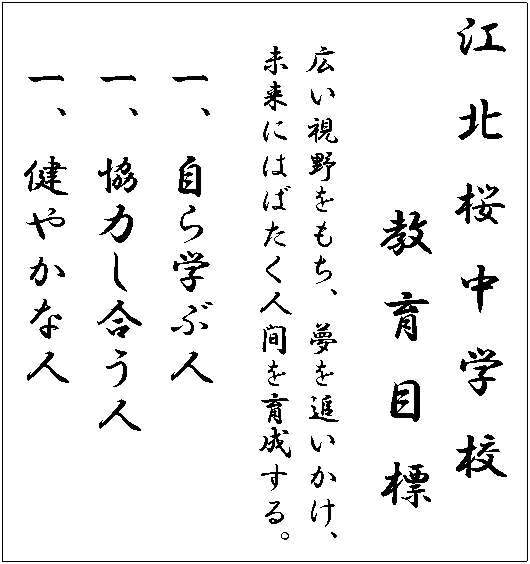 江北桜中学校
教育目標
広い視野をもち、夢を追いかけ、
未来にはばたく人間を育成する。
一、自ら学ぶ人
一、協力し合う人
一、健やかな人